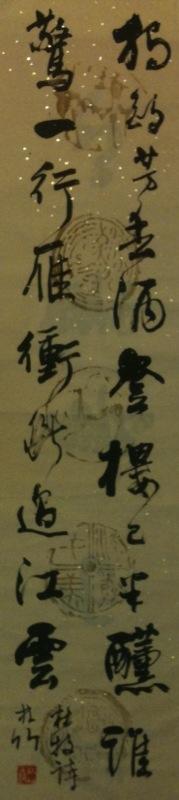 獨酌芳春酒登樓已半醺誰
驚一行雁衝斷過江雲
杜牧詩